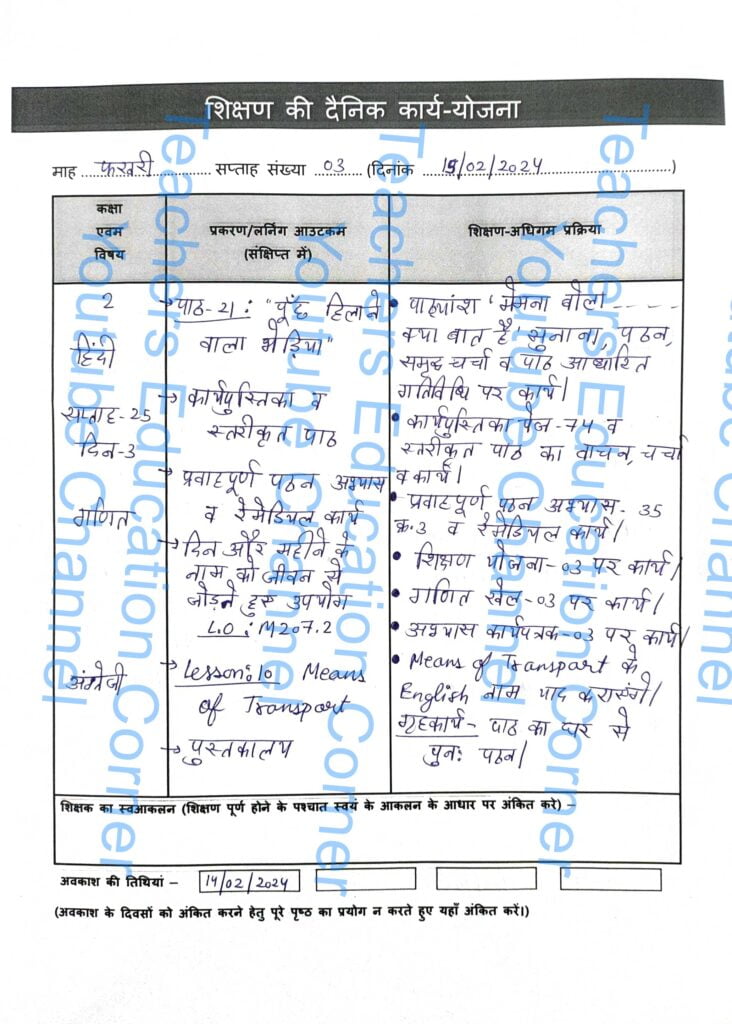 शिक्षण की दैनिक कार्य-योजना
माह ....फरवरी.... सप्ताह संख्या ..03.. (दिनांक ...15/02/2024...)
कक्षा
एवम
विषय
प्रकरण/लर्निंग आउटकम
(संक्षिप्त में)
शिक्षण-अधिगम प्रक्रिया
2
हिंदी
सप्ताह-25
दिन-3
गणित
अंग्रेजी
→ पाठ-21: "पूँछ हिलाने
वाला भेड़िया"
→ कार्यपुस्तिका व
स्तरीकृत पाठ
→ प्रवाहपूर्ण पठन अभ्यास
व रेमेडियल कार्य
→ दिन और महीने के
नाम को जीवन से
जोड़ते हुए उपयोग
L.O: M207.2
→ Lesson:10 Means
of Transport
→ पुस्तकालय
• पाठ्यांश 'मेमना बोला -----
क्या बात है' सुनाना, पठन,
समूह चर्चा व पाठ आधारित
गतिविधि पर कार्य।
• कार्यपुस्तिका पेज-74 व
स्तरीकृत पाठ का वाचन, चर्चा
व कार्य।
• प्रवाहपूर्ण पठन अभ्यास- 35
क्र.3 व रेमेडियल कार्य।
• शिक्षण योजना-03 पर कार्य।
• गणित खेल-03 पर कार्य।
• अभ्यास कार्यपत्रक-03 पर कार्य।
• Means of Transport के
English नाम याद करायेंगे।
गृहकार्य- पाठ का घर से
पुनः पठन।
शिक्षक का स्वआकलन (शिक्षण पूर्ण होने के पश्चात स्वयं के आकलन के आधार पर अंकित करे) –
अवकाश की तिथियां – 14/02/2024
(अवकाश के दिवसों को अंकित करने हेतु पूरे पृष्ठ का प्रयोग न करते हुए यहाँ अंकित करें।)
Teachers Education Corner
Youtube Channel
Teachers Education Corner
Youtube Channel
Teachers Education Corner
Youtube Channel